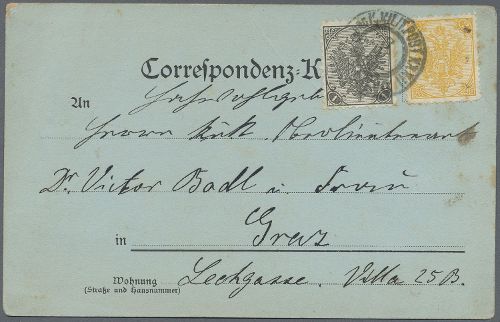 Correspondenz-K
An Hochwohlgeb
Herrn k.u.k. Oberlieutenant
Dr. Victor Badl u. Frau
in Graz
Wohnung
(Straße und Hausnummer)
Lechgasse. Villa 25 B.